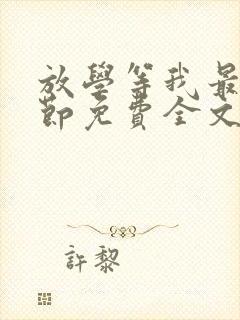 放學等我最
節免費全文
許黎